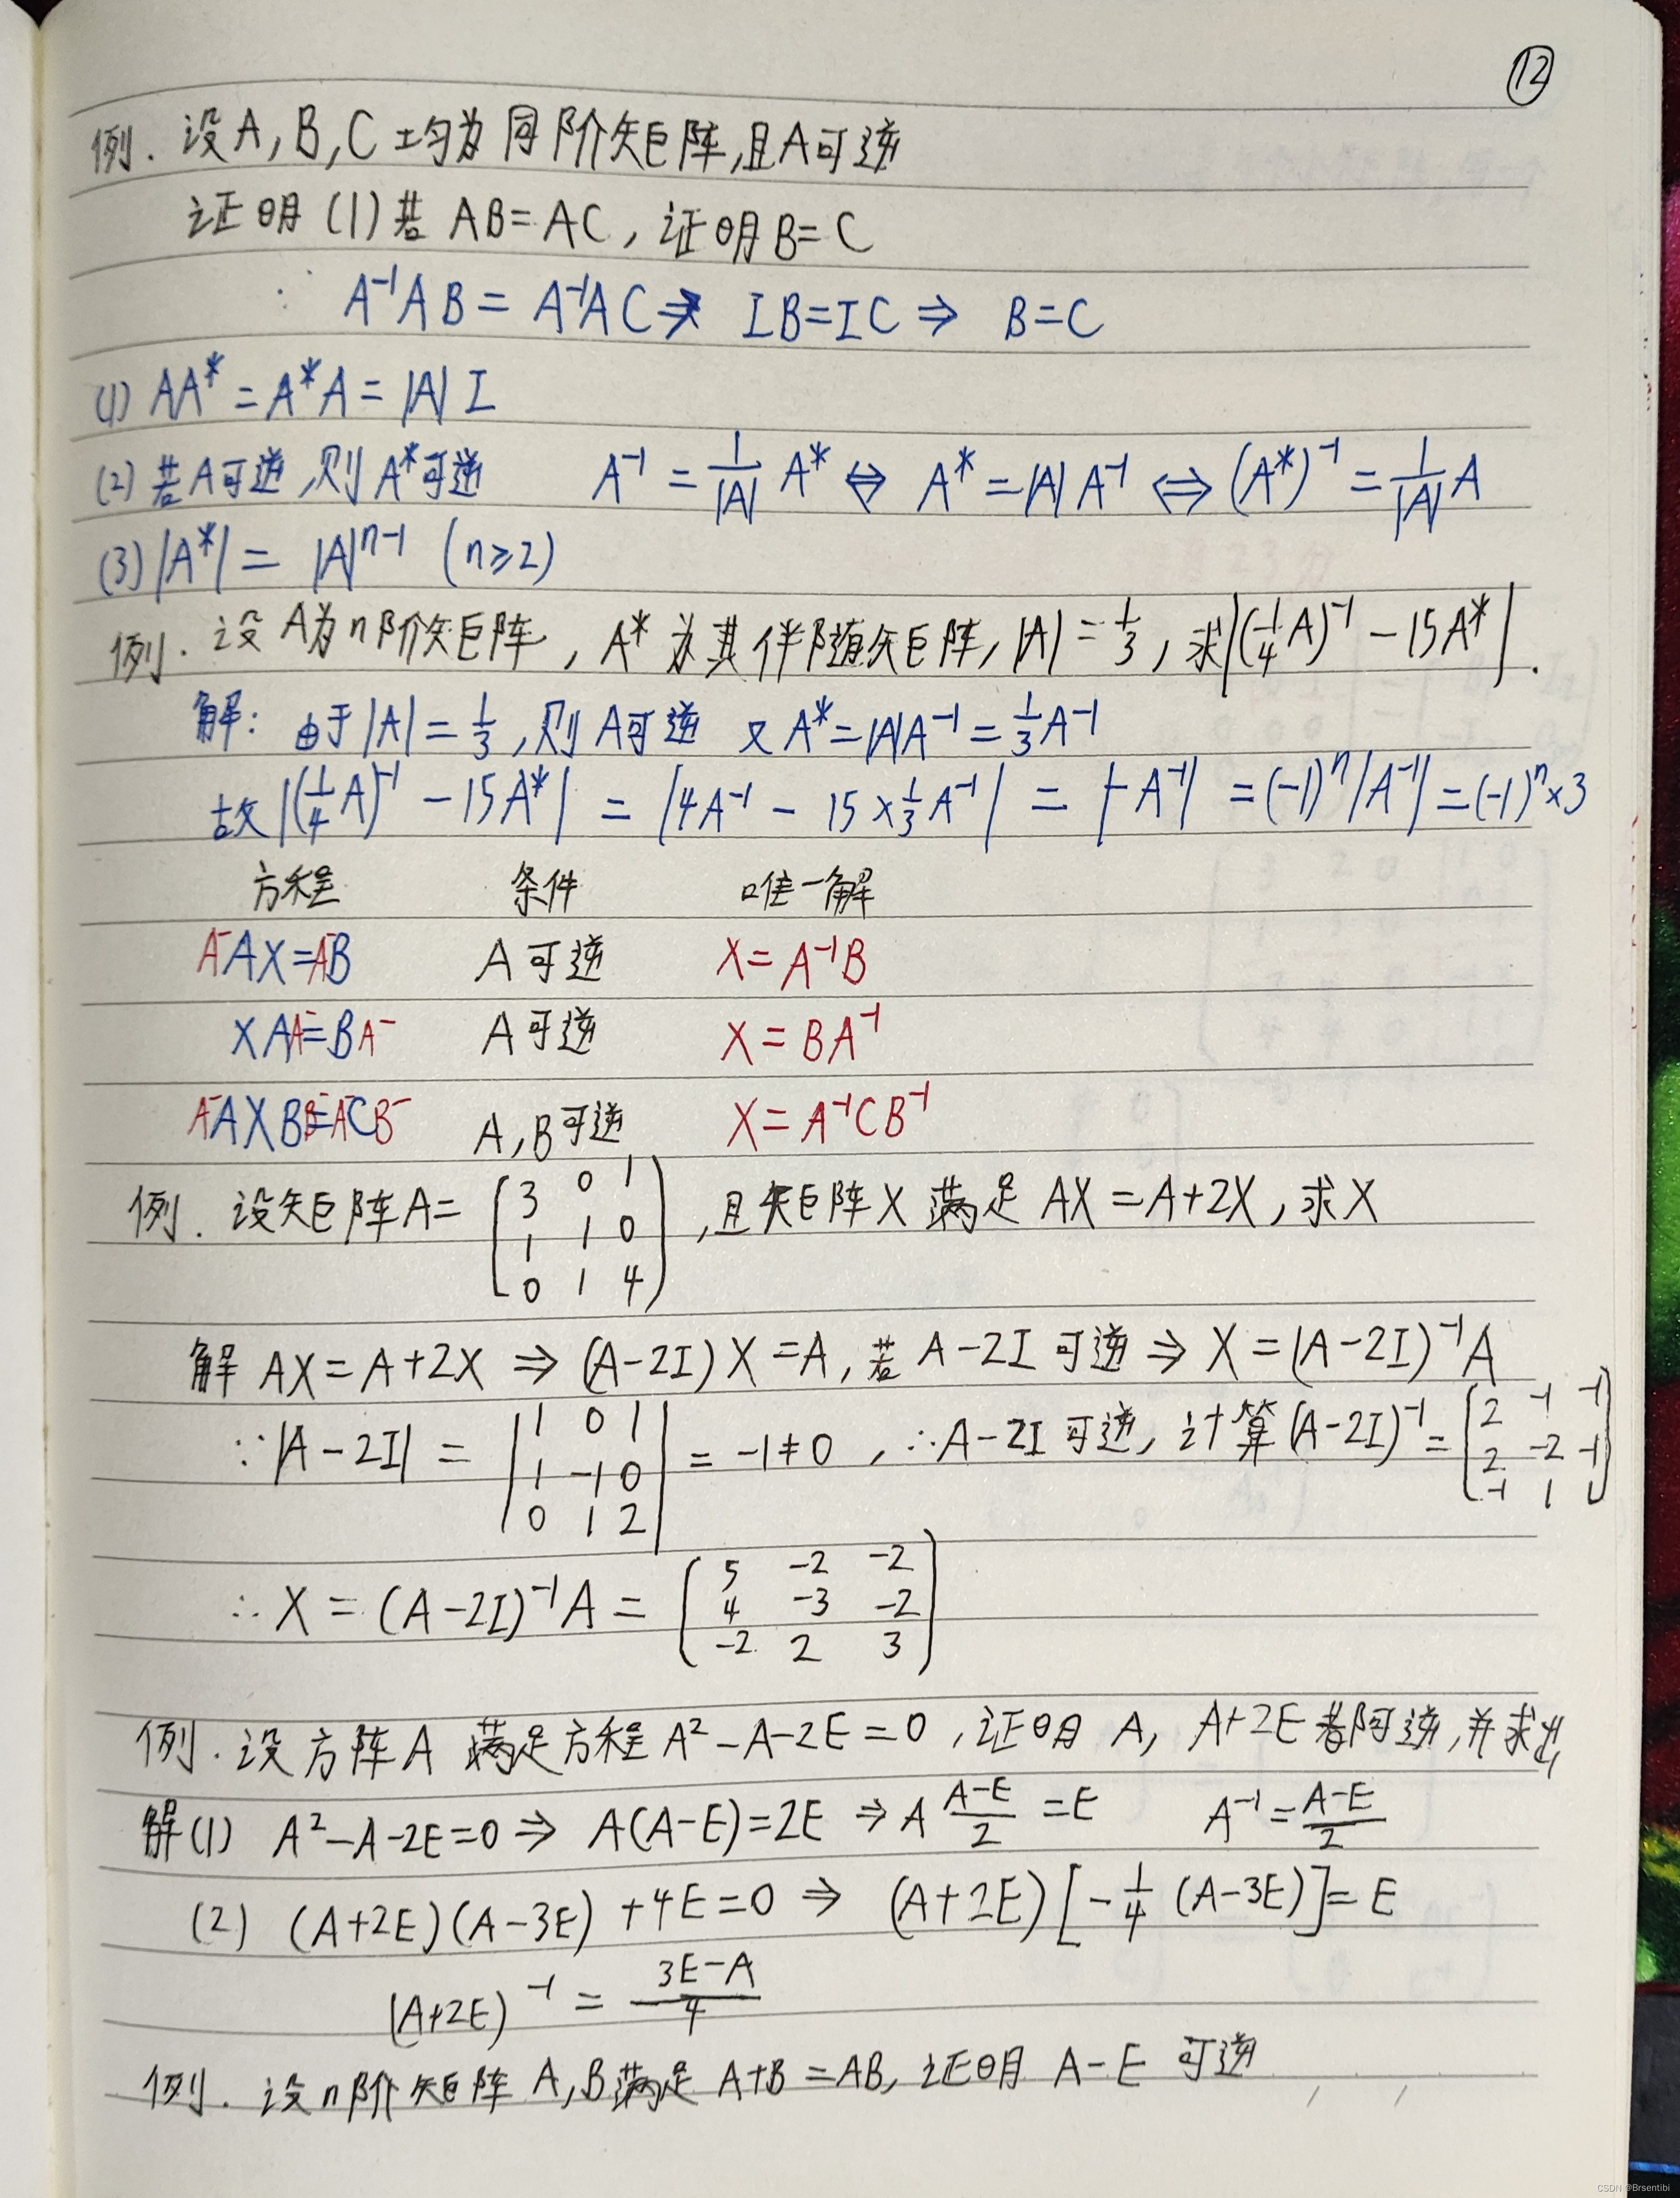 ⑫
例. 设A,B,C均为同阶矩阵,且A可逆
证明(1)若 AB=AC, 证明B=C
∵ A⁻¹AB = A⁻¹AC ⇒ IB=IC ⇒ B=C
(1) AA* = A*A = |A| I
(2) 若A可逆,则A*可逆 A⁻¹ = 1/|A| A* ⇔ A* = |A|A⁻¹ ⇔ (A*)⁻¹ = 1/|A| A
(3) |A*| = |A|ⁿ⁻¹ (n≥2)
例. 设A为n阶矩阵, A*为其伴随矩阵, |A| = 1/3, 求|(1/4 A)⁻¹ - 15A*|.
解: 由于|A| = 1/3, 则A可逆 又A* = |A|A⁻¹ = 1/3 A⁻¹
故|(1/4 A)⁻¹ - 15A*| = |4A⁻¹ - 15×1/3 A⁻¹| = |-A⁻¹| = (-1)ⁿ|A⁻¹| = (-1)ⁿ×3
方程 条件 唯一解
A⁻AX=A⁻B A可逆 X=A⁻¹B
XAA⁻=BA⁻ A可逆 X=BA⁻¹
A⁻AXBB⁻=A⁻CB⁻ A,B可逆 X=A⁻¹CB⁻¹
例. 设矩阵A= (3 0 1
1 1 0
0 1 4) ,且矩阵X满足 AX=A+2X, 求X
解 AX=A+2X ⇒ (A-2I)X=A, 若A-2I可逆 ⇒ X=(A-2I)⁻¹A
∵|A-2I| = |1 0 1
1 -1 0
0 1 2| = -1≠0, ∴A-2I可逆, 计算(A-2I)⁻¹ = [2 -1 -1
2 -2 -1
-1 1 1]
∴ X = (A-2I)⁻¹A = (5 -2 -2
4 -3 -2
-2 2 3)
例. 设方阵A 满足方程A²-A-2E=0, 证明 A, A+2E都可逆,并求出
解(1) A²-A-2E=0 ⇒ A(A-E)=2E ⇒ A (A-E)/2 = E A⁻¹ = (A-E)/2
(2) (A+2E)(A-3E)+4E=0 ⇒ (A+2E)[-1/4 (A-3E)]=E
(A+2E)⁻¹ = (3E-A)/4
例. 设n阶矩阵A,B满足 A+B=AB, 证明 A-E 可逆
CSDN @Brsentibi